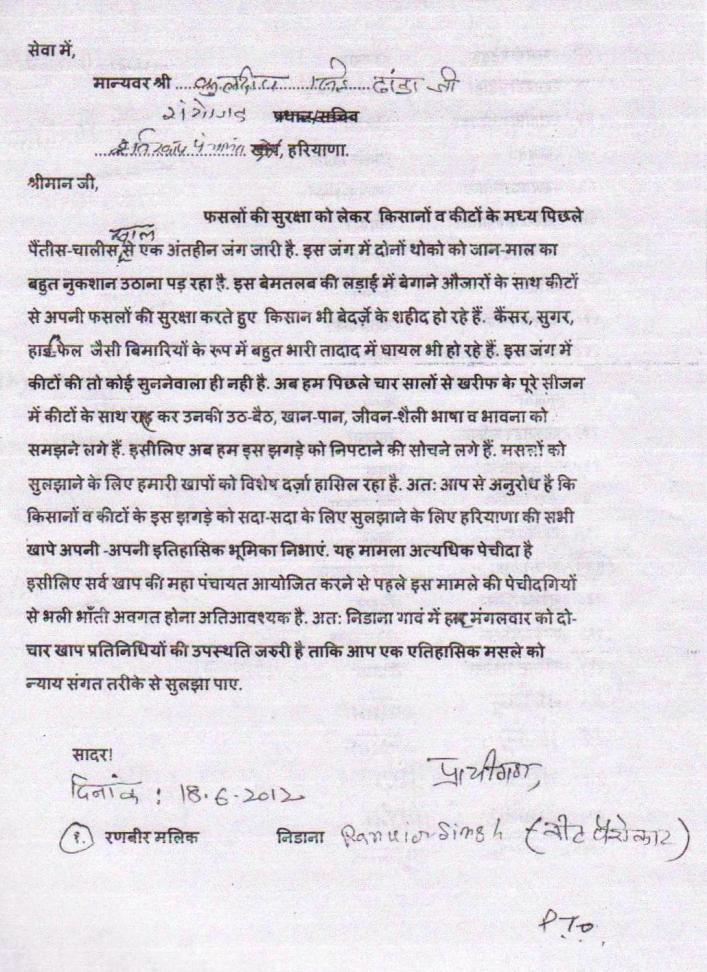 सेवा में,
मान्यवर श्री ....कुलदीप ........ ढांडा जी
प्रधान/सचिव
..................... खाप, हरियाणा.
श्रीमान जी,
फसलों की सुरक्षा को लेकर किसानों व कीटों के मध्य पिछले
पैंतीस-चालीस साल से एक अंतहीन जंग जारी है. इस जंग में दोनों थोको को जान-माल का
बहुत नुकशान उठाना पड़ रहा है. इस बेमतलब की लड़ाई में बेगाने औजारों के साथ कीटों
से अपनी फसलों की सुरक्षा करते हुए किसान भी बेदर्ज़े के शहीद हो रहे हैं. कैंसर, सुगर,
हार्ट फेल जैसी बिमारियों के रूप में बहुत भारी तादाद में घायल भी हो रहे हैं. इस जंग में
कीटों की तो कोई सुननेवाला ही नही है. अब हम पिछले चार सालों से खरीफ के पूरे सीजन
में कीटों के साथ रह कर उनकी उठ-बैठ, खान-पान, जीवन-शैली भाषा व भावना को
समझने लगे हैं. इसीलिए अब हम इस झगड़े को निपटाने की सोचने लगे हैं. मसलों को
सुलझाने के लिए हमारी खापों को विशेष दर्ज़ा हासिल रहा है. अत: आप से अनुरोध है कि
किसानों व कीटों के इस झगड़े को सदा-सदा के लिए सुलझाने के लिए हरियाणा की सभी
खापे अपनी -अपनी इतिहासिक भूमिका निभाएं. यह मामला अत्यधिक पेचीदा है
इसीलिए सर्व खाप की महा पंचायत आयोजित करने से पहले इस मामले की पेचीदगियों
से भली भाँती अवगत होना अतिआवश्यक है. अत: निडाना गावं में हर मंगलवार को दो-
चार खाप प्रतिनिधियों की उपस्थति जरुरी है ताकि आप एक एतिहासिक मसले को
न्याय संगत तरीके से सुलझा पाए.
सादर!
प्रार्थीगण,
दिनांक : 18.6.2012
१. रणबीर मलिक निडाना Ranvior Singh (कीट कमांडर)
P.T.O.